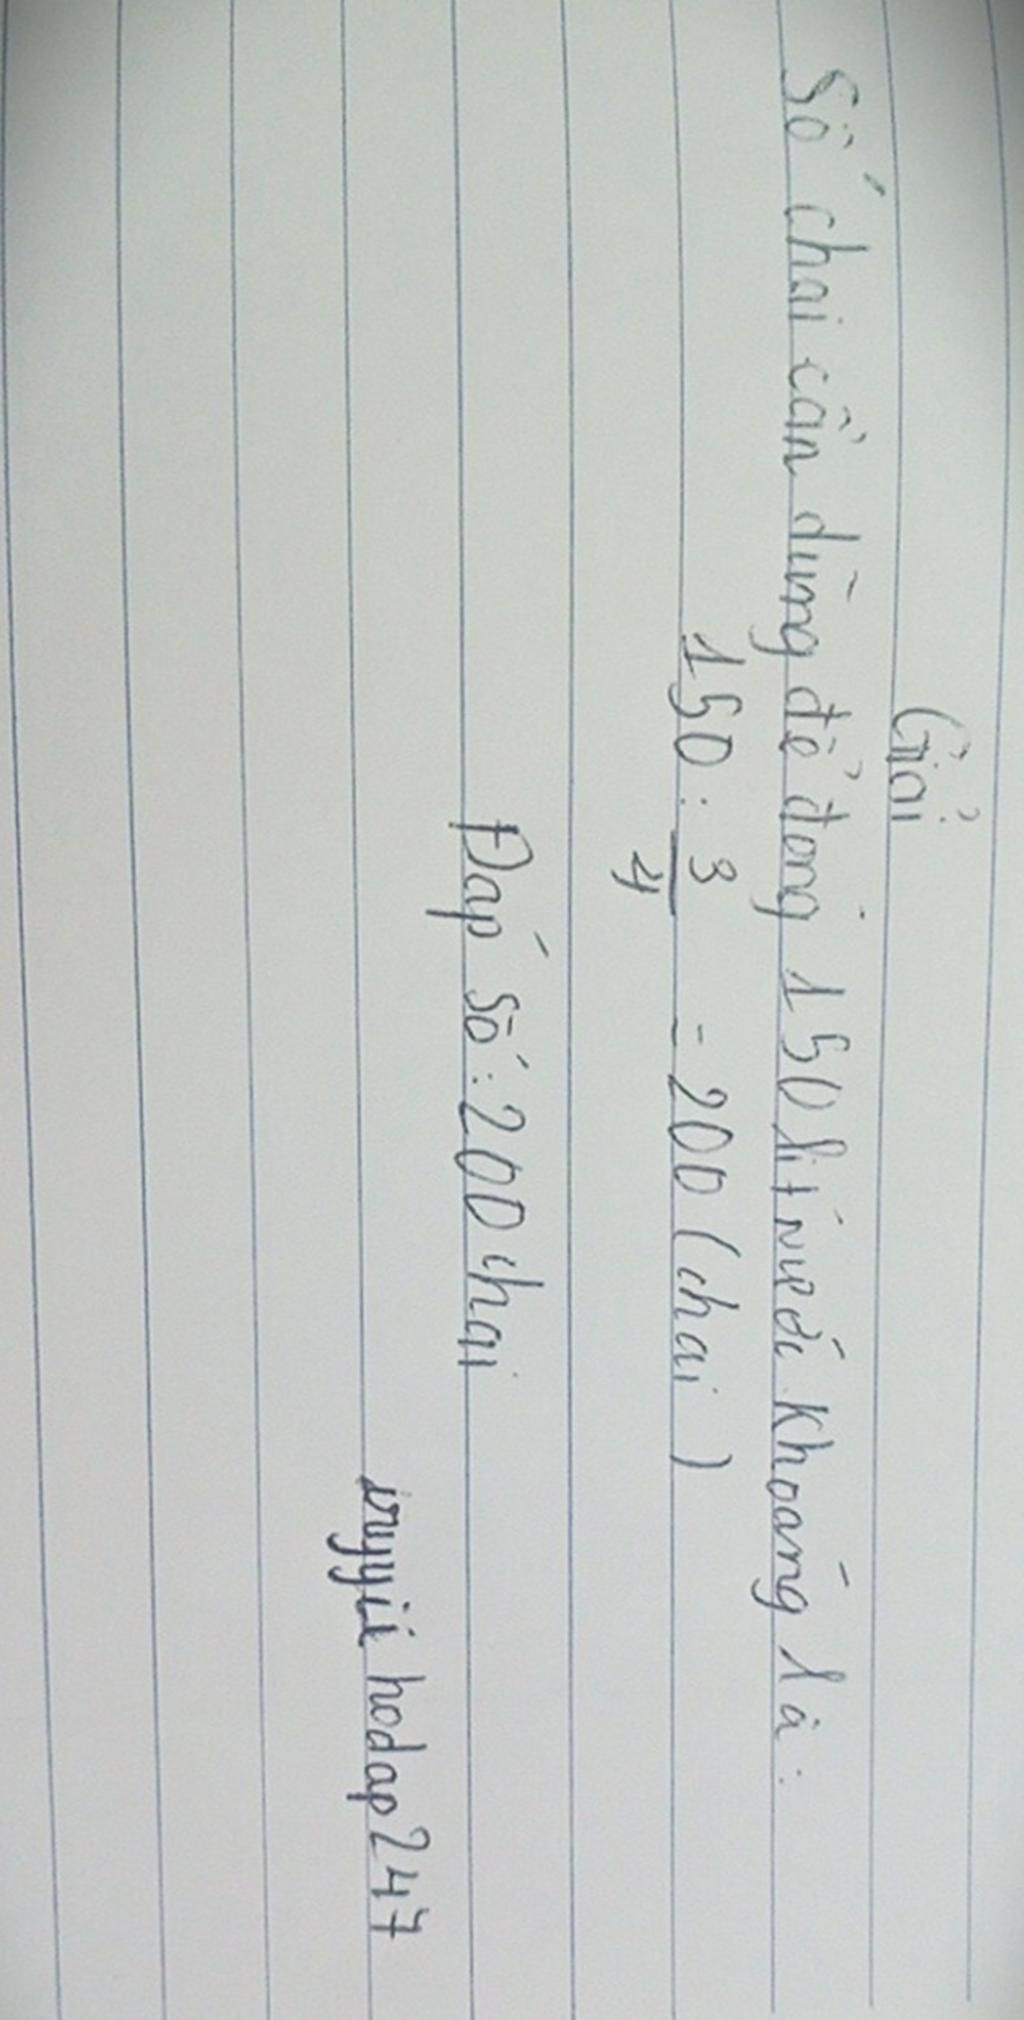 Giải
Số chai cần dùng để đong 150 lít nước khoáng là:
150 : 3/4 = 200 (chai)
Đáp số: 200 chai
hodap247